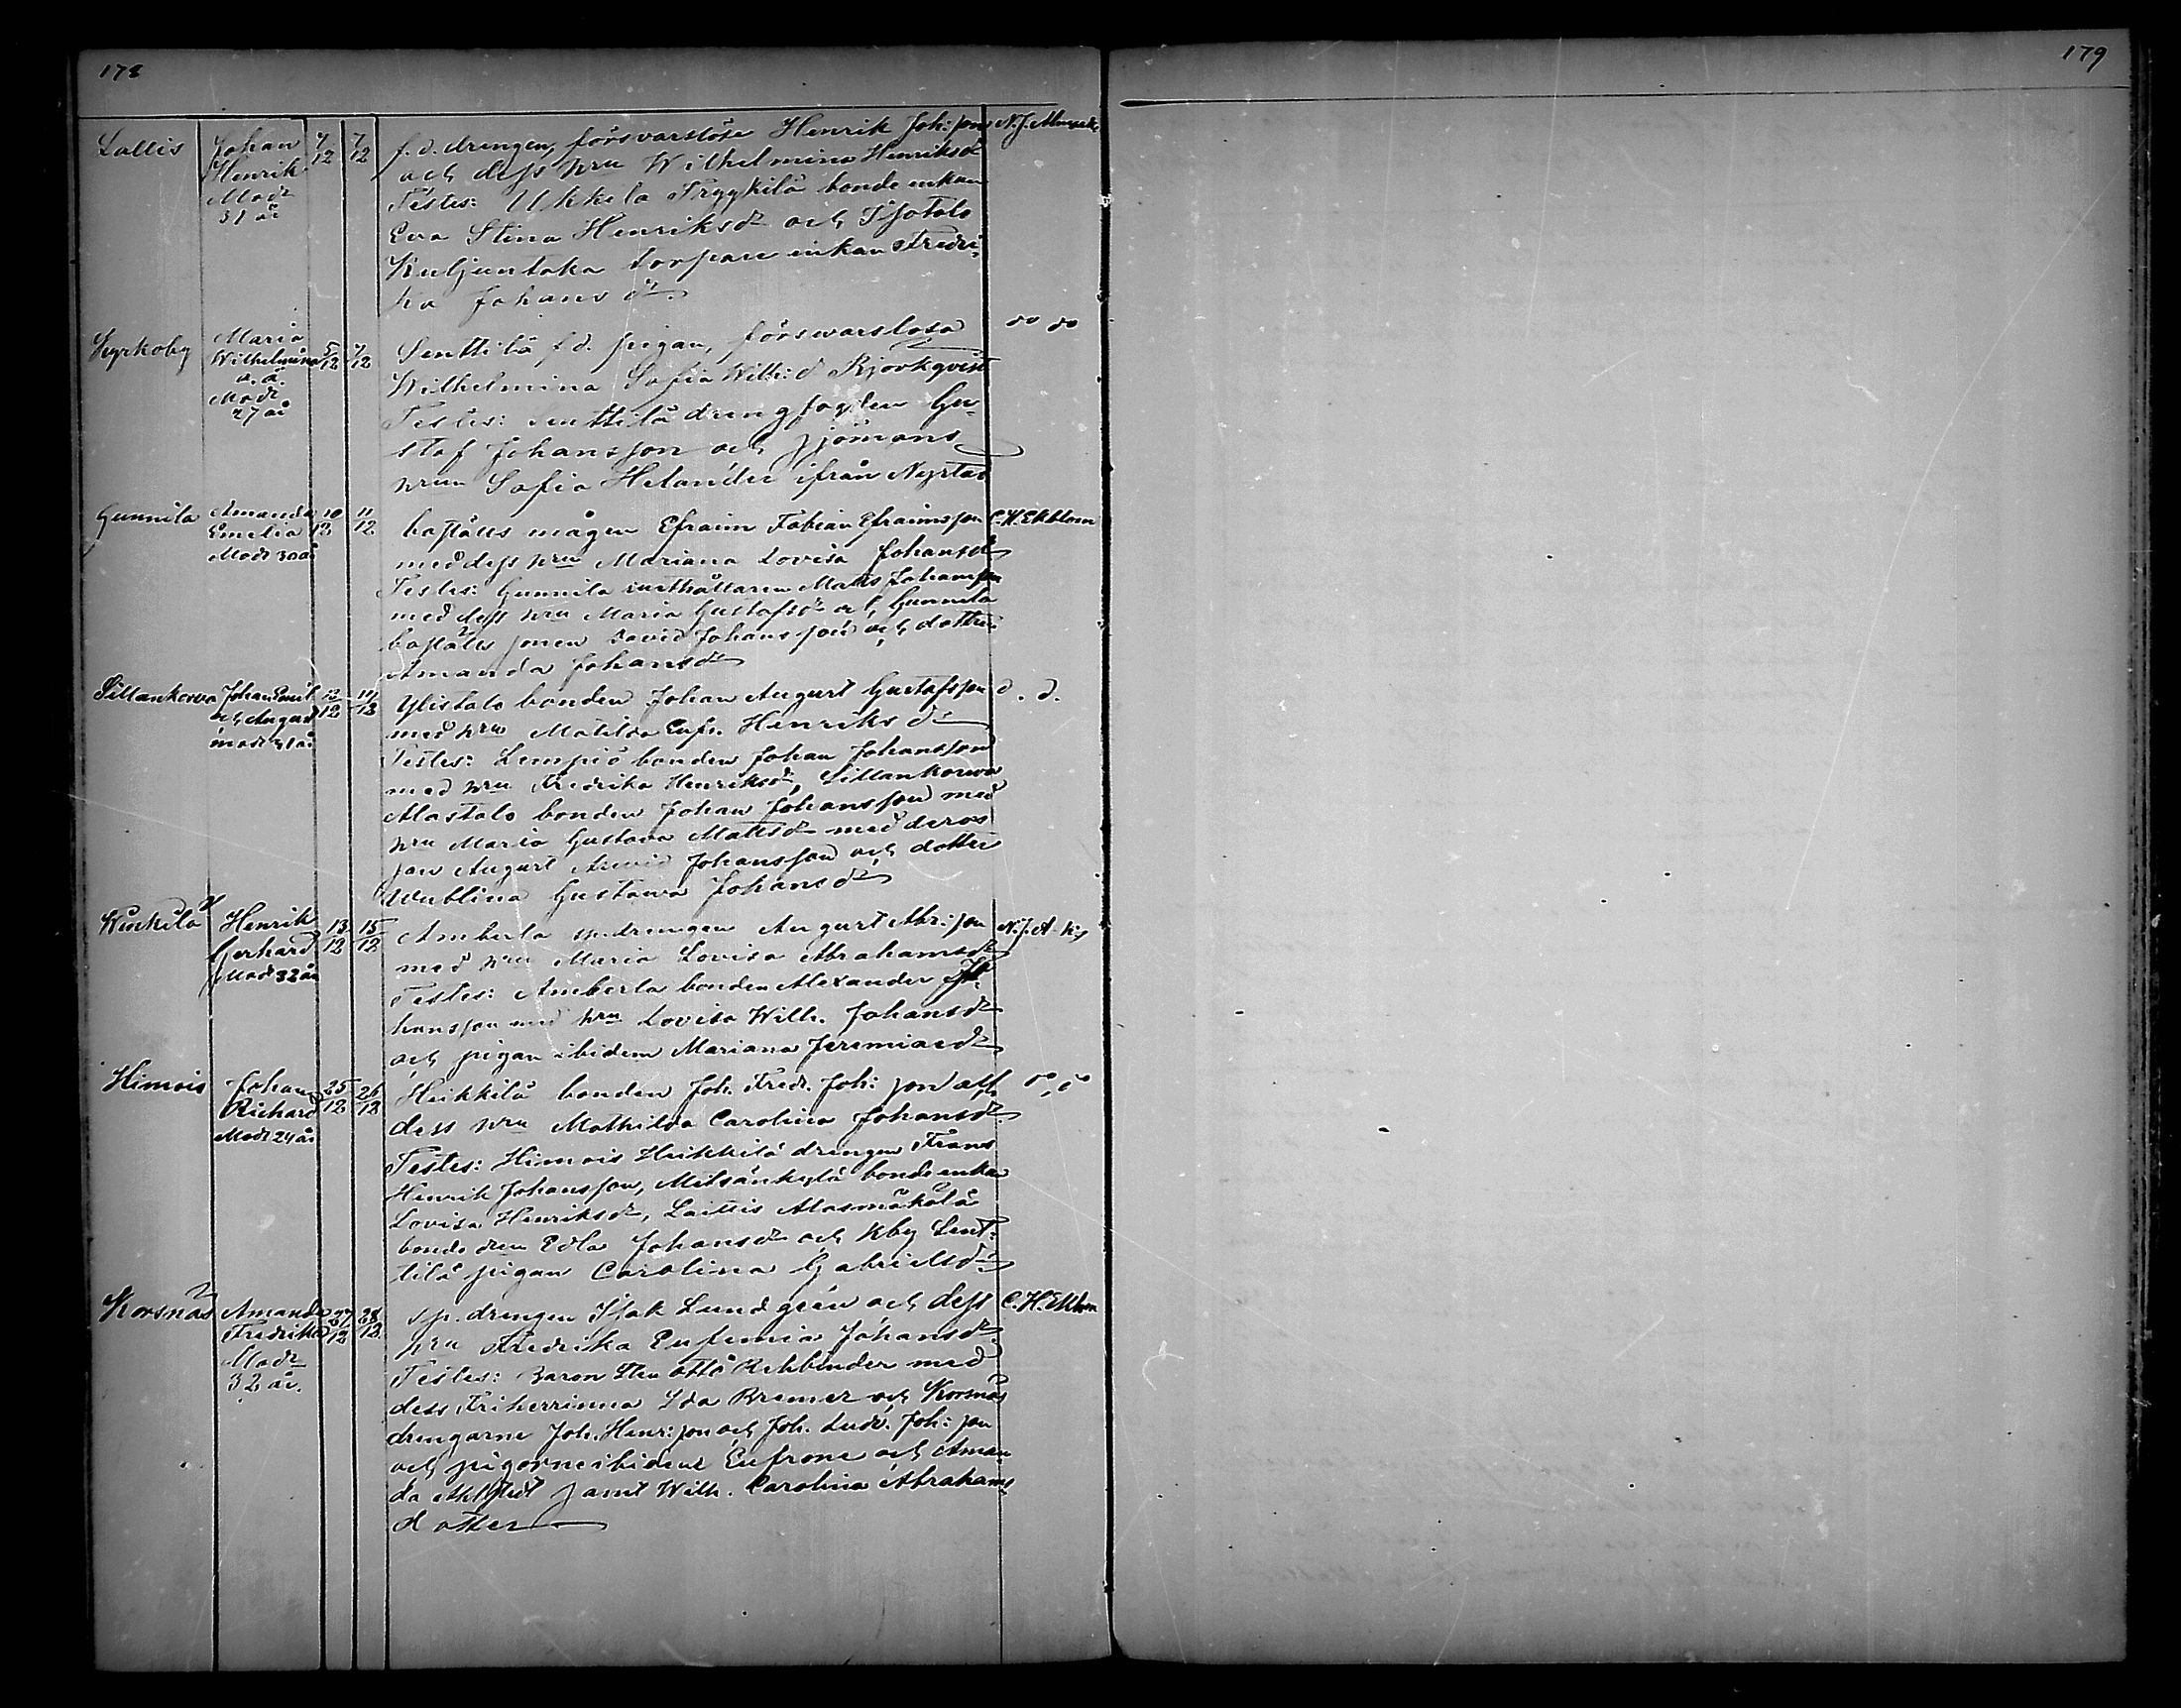 178
179
Lallis
Johan
Henrik
Modr
31 år
7/12
7/12
f. d. drengen, försvarslöse Henrik Joh:son
och dess hru Wilhelmina Henriksdr
Testes: Uhkila Tryykilä bonde enkan
Eva Stina Henriksdr och Isotalo
Kuljuntaka torpare enkan Fredri-
ka Johansdr.
N. J.
Kyrkoby
Maria
Wilhelmina
o. ä.
Modr
27 år
5/12
7/12
Senttilä f d. pigan, försvarslosa
Wilhelmina Sofia Wilh: d Björkqvist
Testes: Senttilä drengfogden Gu-
staf Johansson och sjömans
hrun Sofia Helander ifrån Nystad
do do
Gunnila
Amanda
Emelia
Modr 30 år
10/12
11/12
bastälts mågen Efraim Fabian Efraimsson
med dess hru Mariana Lovisa Johansdr
Testes: Gunnila inethållaren Matts Johansson
med dess hru Maria Gustafsdr och Gunnila
bofläts sonen David Johansson och dottren
Amanda Johansdr
C. H. Ekblom
Sillankorva
Johan Emil
och August
modr 31 år
12/12
Ylistalo bonden Johan August Gustafsson
med hru Matilda Eufr. Henriksdr
Testes: Lempiö bonden Johan Johansson
med hru Fredrika Henriksdr, Sillankorva
Alastalo bonden Johan Johansson med
hru Maria Gustava Mattsdr med deras
son August Arvid Johansson och dotter
Wublina Gustawa Johansdr
d. d.
Winkilä
Henrik
Gerhard
Modr 32 år
13/12
15/12
Amberla sp.drengen August Abr:son
med hru Maria Lovisa Abrahamsdr
Testes: Amberla bonden Alexander Jo-
hansson med hru Lovisa Wilh. Johansdr
och pigan ibidem Mariana Jeremiaedr
N. J. A-k
Himois
Johan
Richard
Modr 24 år
25/12
26/12
Heikkilä bonden Joh. Fred. Joh: son och
dess hru Mathilda Carolina Johansdr
Testes: Himois Heikkilä drengen Frans
Henrik Johansson, Mitsänkylä bonde enkan
Lovisa Henriksdr, Laittis Alasmäkälä
bonde Edla Johansdr och Kby Sent-
tilä pigan Carolina Gabrielsdr
do, do
Korsnäs
Amanda
Fredrika
Modr
32 år.
27/12
28/12
sp. drengen Isak Lundgrén och dess
hru Fredrika Eufemia Johansdr
Testes: Baron Sten Otto Rehbinder med
dess Friherrinna Ida Bremer och Korsnäs
drengarne Joh. Henr:son och Joh. Ludv. Joh: son
och pigorne ibidem Eufrone och Aman
da Ahlstedt samt Wilh. Carolina Abrahams
dotter
C. H. Ekblom